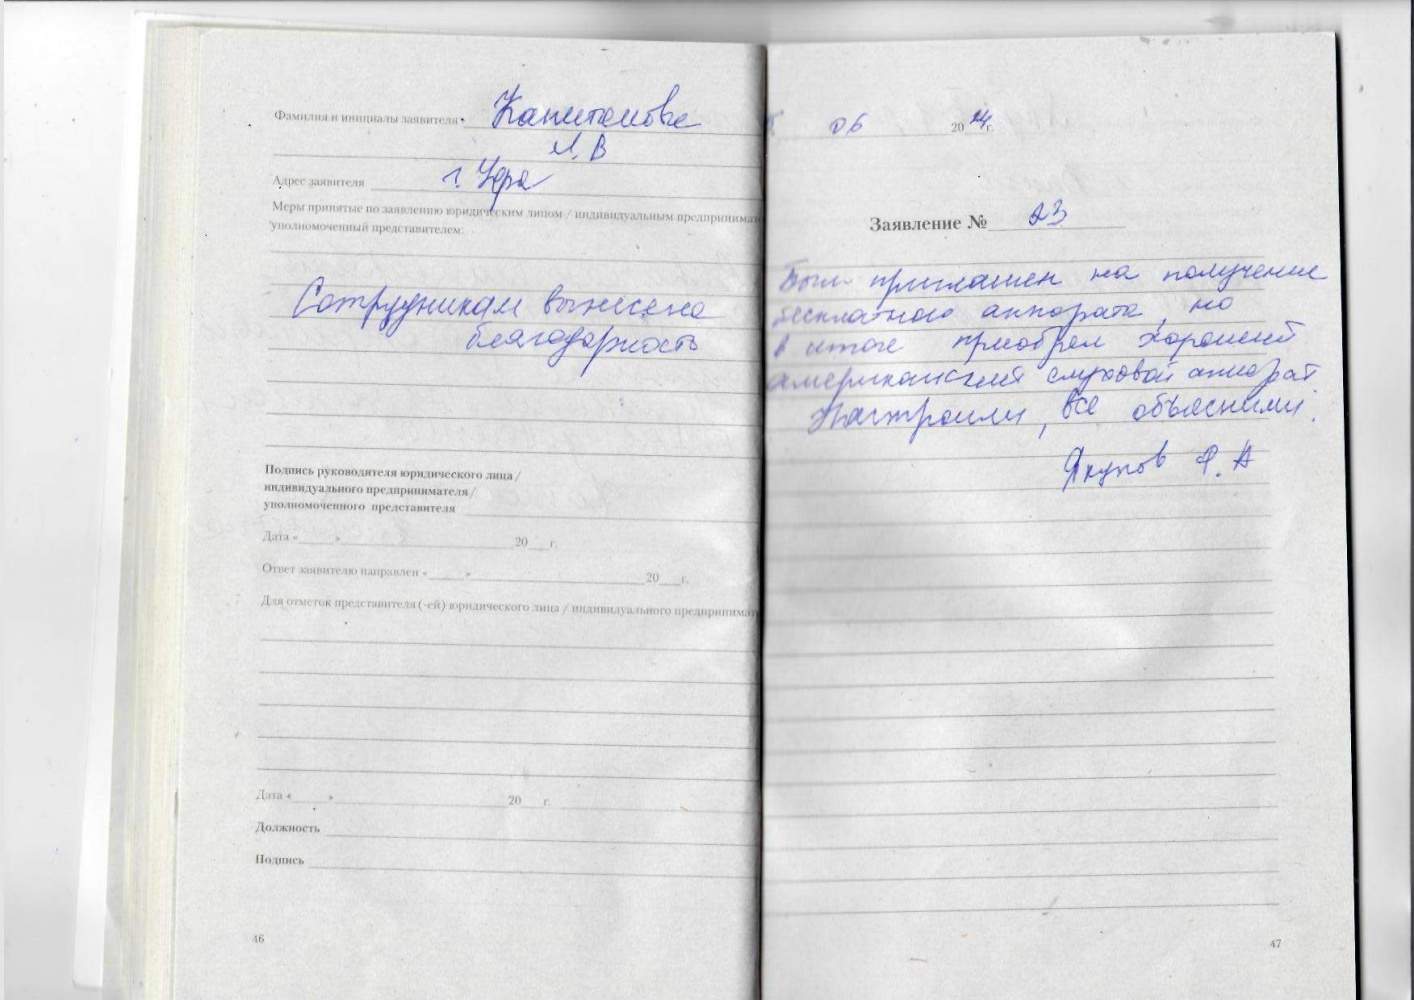 Фамилия и инициалы заявителя Капитонова
Л. В
Адрес заявителя г. Уфа
Меры принятые по заявлению юридическим лицом / индивидуальным предпринимат
уполномоченный представителем:
Сотрудникам вынесена
благодарность
Подпись руководителя юридического лица /
индивидуального предпринимателя /
уполномоченного представителя
Дата « » 20 г.
Ответ заявителю направлен « » 20 г.
Для отметок представителя (-ей) юридического лица / индивидуального предпринимат
Дата « » 20 г.
Должность
Подпись
46
06 2014 г.
Заявление № 23
Был приглашен на получение
бесплатного аппарата, но
в итоге приобрел хороший
американский слуховой аппарат
Настроили, все объяснили.
Якупов Ф. А
47